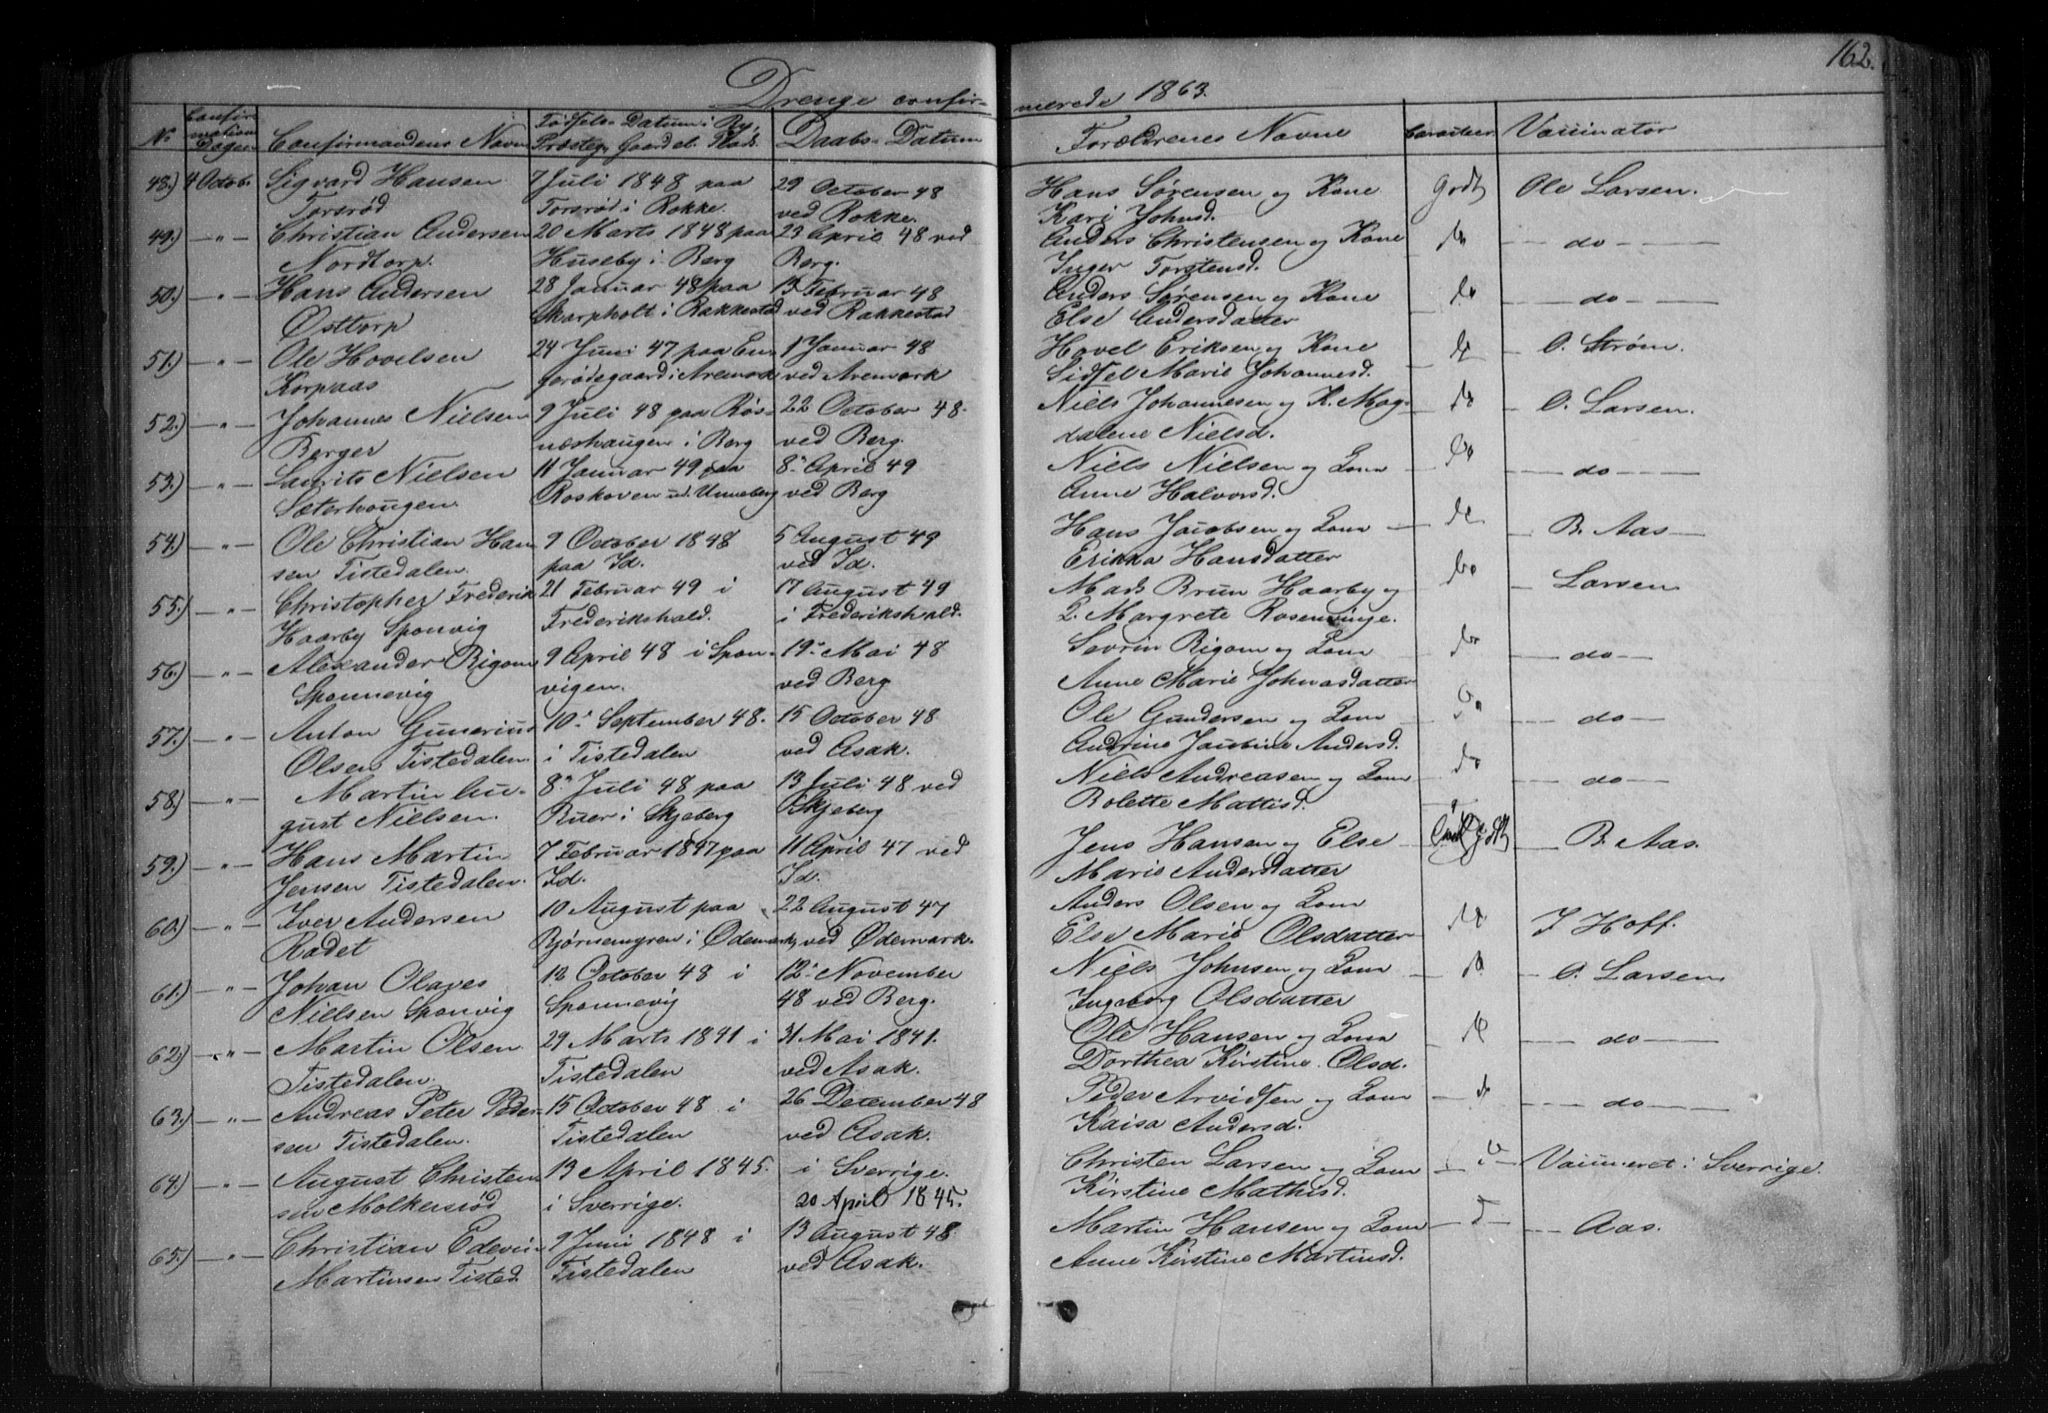 162.
Drenge confir-
merede 1863.
No Confirmations Dagen Confirmandens Navn Fødsels-Datum i By, Præsteg. Gaard el. Plads. Daabs-Datum Forældrenes Navne Caracteer Vaccinator
48.) 4 Octob. Sigvard Hansen 7 Juli 1848 paa 29 October 48 Hans Sørensen og Kone Godt Ole Larsen.
Torsrød Torsrød i Rokke. ved Rokke. Kari Johnsd.
49.) — " — Christian Andersen 20 Marts 1848 paa 23 April 48 ved Anders Christensen og Kone do — do —
Nordtorp. Huseby i Berg Berg. Inger Torstensd.
50.) — " — Hans Andersen 28 Januar 48 paa 13 Februar 48 Anders Sørensen og Kone do — do —
Østtorp Skarpholt i Rakkestad ved Rakkestad Else Andersdatter
51.) — " — Ole Hovelsen 24 Juni 47 paa En- 1 Januar 48 Hovel Eriksen og Kone do — O. Strøm.
Korpaas gerødegaard i Aremark ved Aremark Sidsel Marie Johannesd.
52.) — " — Johannes Nielsen 9 Juli 48 paa Røs- 22 October 48. Niels Johannesen og K. Mag- do — O. Larsen.
Berger næshaugen i Berg ved Berg. dalene Nielsd.
53.) — " — Laurits Nielsen 11 Januar 49 paa 8 April 49 Niels Nielsen og Kone do — do —
Sæterhaugen. Roskoven ud. Unneberg ved Berg Anne Halvorsd.
54.) — " — Ole Christian Han 9 October 1848 5 August 49 Hans Jacobsen og Kone — do — B. Aas —
sen Tistedalen. paa Id. ved Id. Erikka Hansdatter
55.) — " — Christopher Frederik 21 Februar 49 i 17 August 49 Mads Brun Haarby og do — Larsen
Haarby Sponvig Frederikshald. i Frederikshald. K. Margrete Rosenvinge.
56.) — " — Alexander Rigom 9 April 48 i Spon- 19 Mai 48 Sevrin Rigom og Kone do — do —
Sponnevig vigen. ved Berg Anne Marie Johnasdatter
57.) — " — Anton Gunerius 10 September 48. 15 October 48 Ole Gundersen og Kone do — do —
Olsen Tistedalen. i Tistedalen ved Asak. Andrine Jacobine Andersd.
58.) — " — Martin Au- 8 Juli 48 paa 13 Juli 48 ved Niels Andreasen og Kone do — do —
gust Nielsen. Buer i Skjeberg Skjeberg Bolette Mattisd.
59.) — " — Hans Martin 7 Februar 1847 paa 11 April 47 ved Jens Hansen og Else Godt — B. Aas.
Jensen Tistedalen. Id. Id. Marie Andersdatter
60.) — " — Iver Andersen 10 August paa 22 August 47 Anders Olsen og Kone do — J Hoff.
Rødet Bjørnemyren i Ødemark, ved Ødemark. Else Marie Olsdatter
61.) — " — Johan Olaves 12 October 48 i 12 November Niels Johnsen og Kone — do — O. Larsen
Nielsen Sponvig Sponnevig 48 ved Berg. Ingeborg Olsdatter
62.) — " — Martin Olsen 29 Marts 1841 i 31 Mai 1841. Ole Hansen og Kone do — do —
Tistedalen. Tistedalen ved Asak. Dorthea Kirstine Olsd.
63.) — " — Andreas Peter Peder- 15 October 48 i 26 December 48 Peder Arvidsen og Kone — do — do —
sen Tistedalen. Tistedalen ved Asak. Kaisa Andersd.
64.) — " — August Christen 13 April 1845. i Sverrige. Christen Larsen og Kone — do — Vaccineret i Sverrige.
sen Molkersrød i Sverrige. 20 April 1845. Kirstine Mathisd.
65.) — " — Christian Edevin 9 Juni 1848 i 13 August 48 Martin Hansen og Kone — do — Aas.
Martinsen Tisted. Tistedalen ved Asak. Anne Kirstine Martinsd.